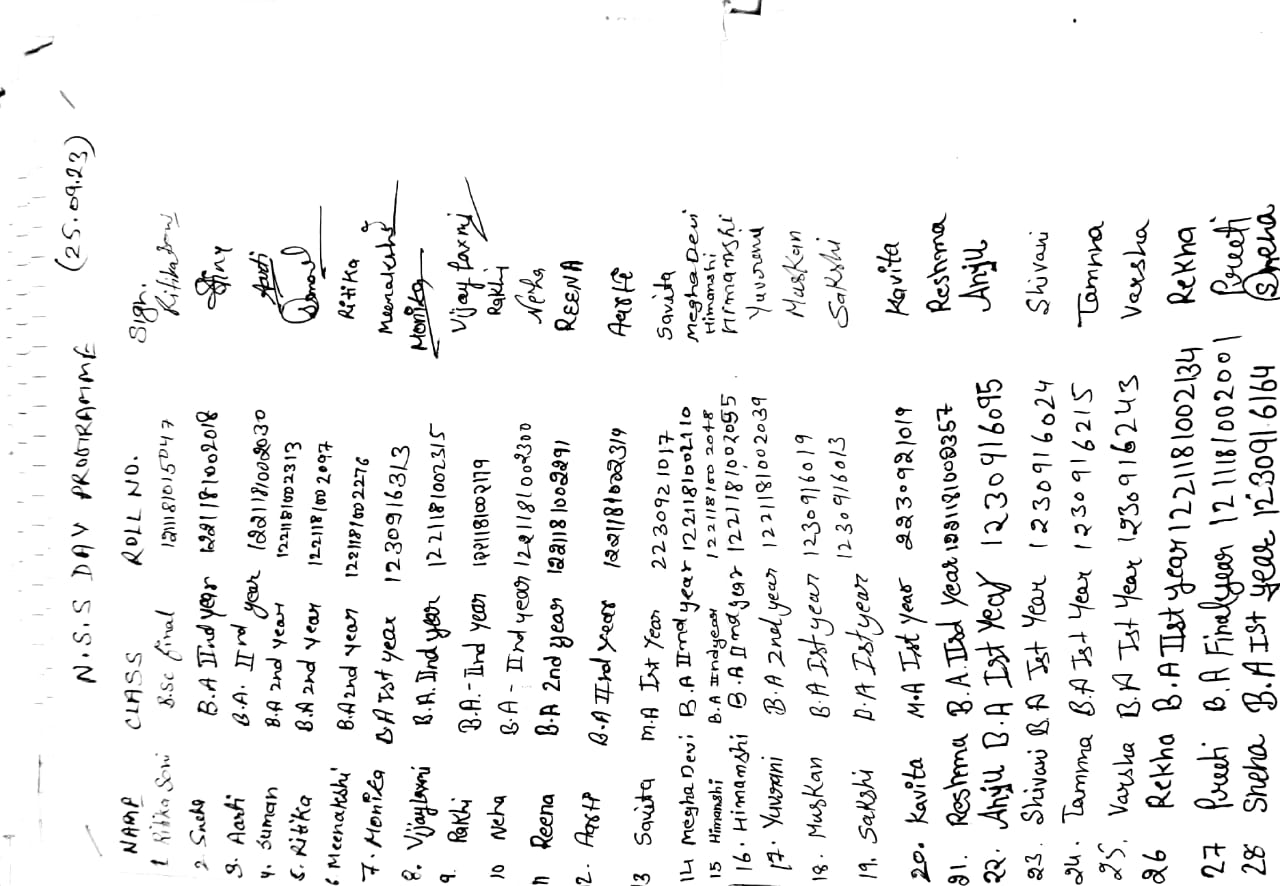 N.S.S DAY PROGRAMME (25.09.23)
NAME CLASS ROLL NO. Sign.
1 Ritika Soni B.Sc final 1211181015047 Ritika Soni
2. Sneha B.A IInd year 1221181002018
3. Aarti B.A. IInd year 1221181002030 Aarti
4. Suman B.A 2nd year 1221181002313 Suman
5. Ritika B.A 2nd year 1221181002097 Ritika
6 Meenakshi B.A 2nd year 1221181002276 Meenakshi
7. Monika B.A Ist year 1230916313 Monika
8. Vijaylaxmi B.A. IInd year 1221181002315 Vijay laxmi
9. Rakhi B.A.- IInd year 1221181002179 Rakhi
10 Neha B.A - IInd year 1221181002300 Neha
11 Reena B.A 2nd year 1221181002291 REENA
12. Aarti B.A IInd year 1221181002319 Aarti
13 Savita M.A Ist Year 2230921017 Savita
14 Megha Devi B.A IInd year 1221181002110 Megha Devi
15 Himanshi B.A IInd year 1221181002048 Himanshi
16. Himamshi B.A IInd year 1221181002055 Himamshi
17. Yuvrani B.A 2nd year 1221181002039 Yuvrani
18. Muskan B.A Ist year 1230916019 Muskan
19. Sakshi B.A Ist year 1230916013 Sakshi
20. Kavita M.A Ist year 2230921019 Kavita
21. Reshma B.A. IInd year 1221181002357 Reshma
22. Anju B.A Ist Year 1230916095 Anju
23. Shivani B.A Ist Year 1230916024 Shivani
24. Tamnna B.A Ist Year 1230916215 Tamnna
25. Varsha B.A Ist Year 1230916243 Varsha
26 Rekha B.A IIst year 1221181002134 Rekha
27 Preeti B.A Final year 1211181002001 Preeti
28 Sneha B.A Ist year 1230916164 Sneha